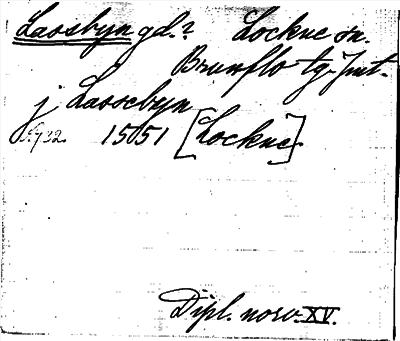 Lassbyn gd.? Lockne sn.
Brunflo tg. Jmt.
j Lassebyn
s. 932. 1505 1 [Lockne].
Dipl. norv. XV.